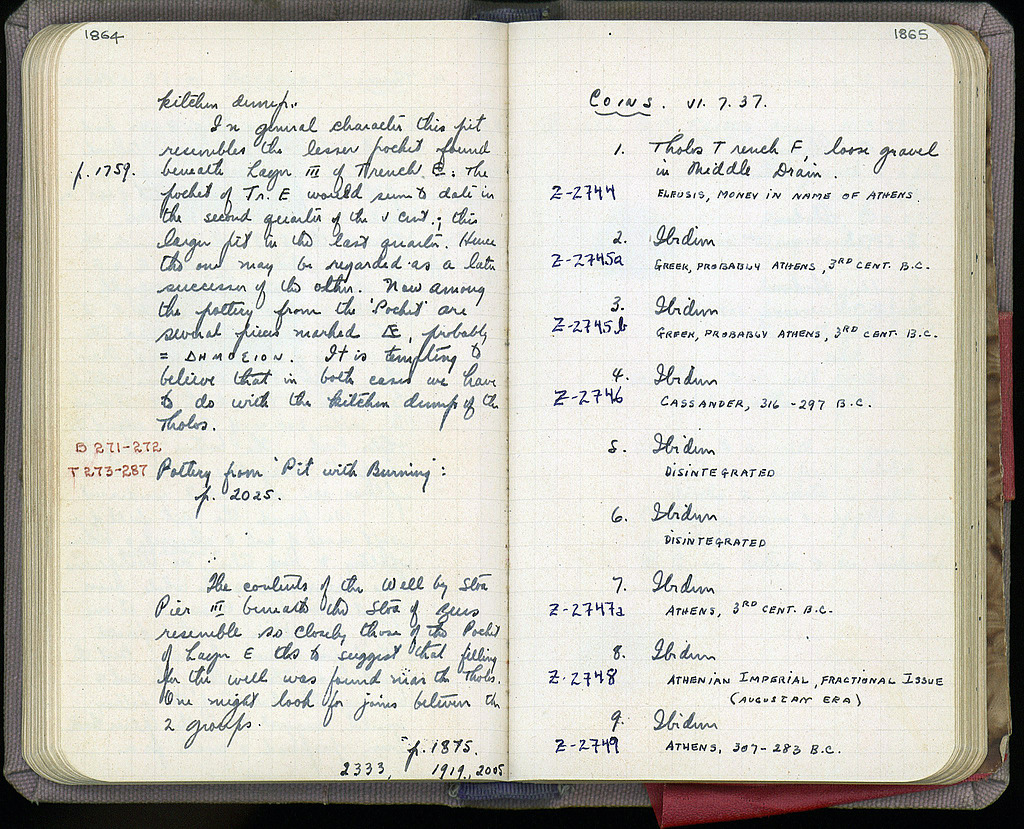 1864
kitchen dump.
In general character this pit
resembles the lesser pocket found
p. 1759. beneath Layer III of Trench E: the
pocket of Tr. E would seem to date in
the second quarter of the V cent.; this
larger pit in the last quarter. Hence
the one may be regarded as a later
successor of the other. Now among
the pottery from the 'Pocket' are
several pieces marked ΔΕ, probably
= ΔΗΜΟΣΙΟΝ. It is tempting to
believe that in both cases we have
to do with the kitchen dump of the
Tholos.
B 271-272
T 273-287 Pottery from 'Pit with Burning':
p. 2025.
The contents of the Well by Stoa
Pier III beneath the Stoa of Zeus
resemble so closely those of the Pocket
of Layer E as to suggest that filling
for the well was found near the Tholos.
One might look for joins between the
2 groups.
p. 1875.
2333, 1919, 2005
1865
Coins. VI. 7. 37.
1. Tholos Trench F, loose gravel
in Middle Drain.
Z-2744 ELEUSIS, MONEY IN NAME OF ATHENS.
2. Ibidum
Z-2745a GREEK, PROBABLY ATHENS, 3RD CENT. B.C.
3. Ibidum
Z-2745b GREEK, PROBABLY ATHENS, 3RD CENT. B.C.
4. Ibidum
Z-2746 CASSANDER, 316-297 B.C.
5. Ibidum
DISINTEGRATED
6. Ibidum
DISINTEGRATED
7. Ibidum
Z-2747a ATHENS, 3RD CENT. B.C.
8. Ibidum
Z-2748 ATHENIAN IMPERIAL, FRACTIONAL ISSUE
(AUGUSTAN ERA)
9. Ibidum
Z-2749 ATHENS, 307-283 B.C.